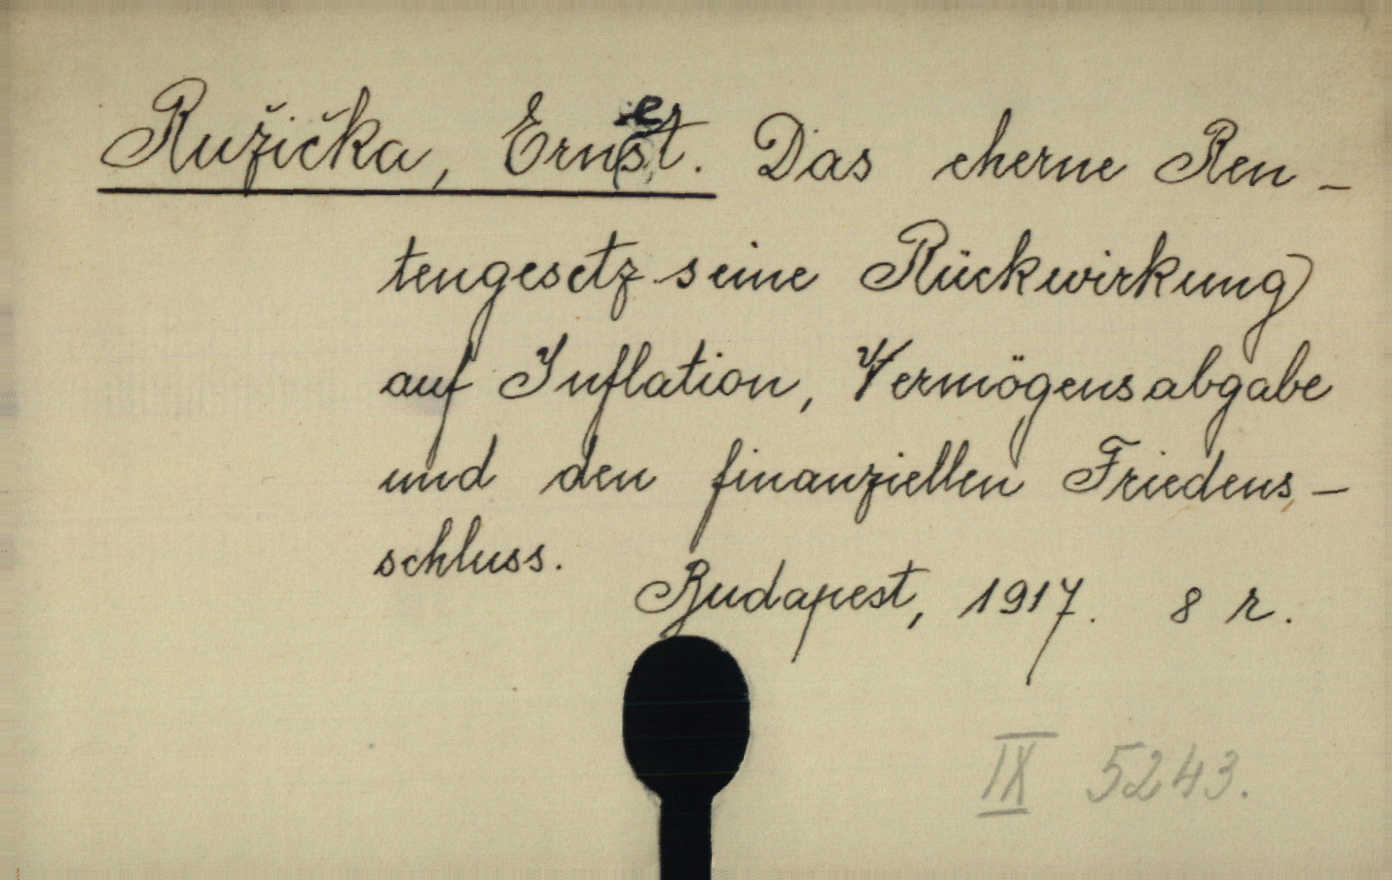 Ružička, Ernest. Das eherne Ren-
tengesetz seine Rückwirkung
auf Inflation, Vermögensabgabe
und den finanziellen Friedens-
schluss.
Budapest, 1917. 8 r.
IX 5243.